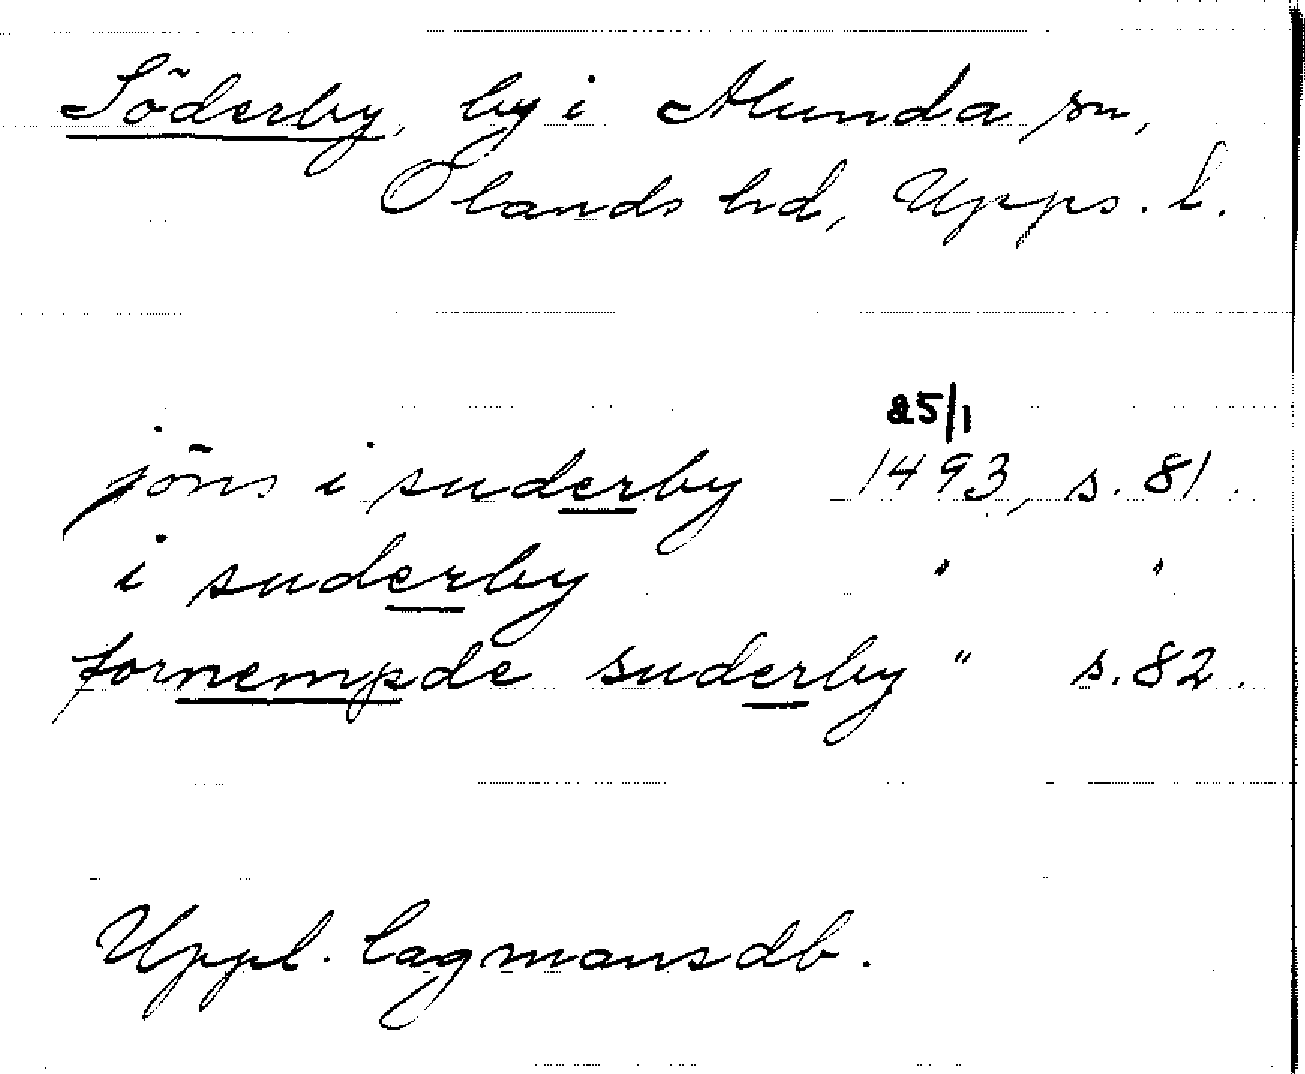 Söderby, by i Alunda sn,
Olands hd, Upps. l.
25/1
jöns i suderby 1493, s. 81.
i suderby " "
fornempde suderby " s. 82.
Uppl. lagmansdb.